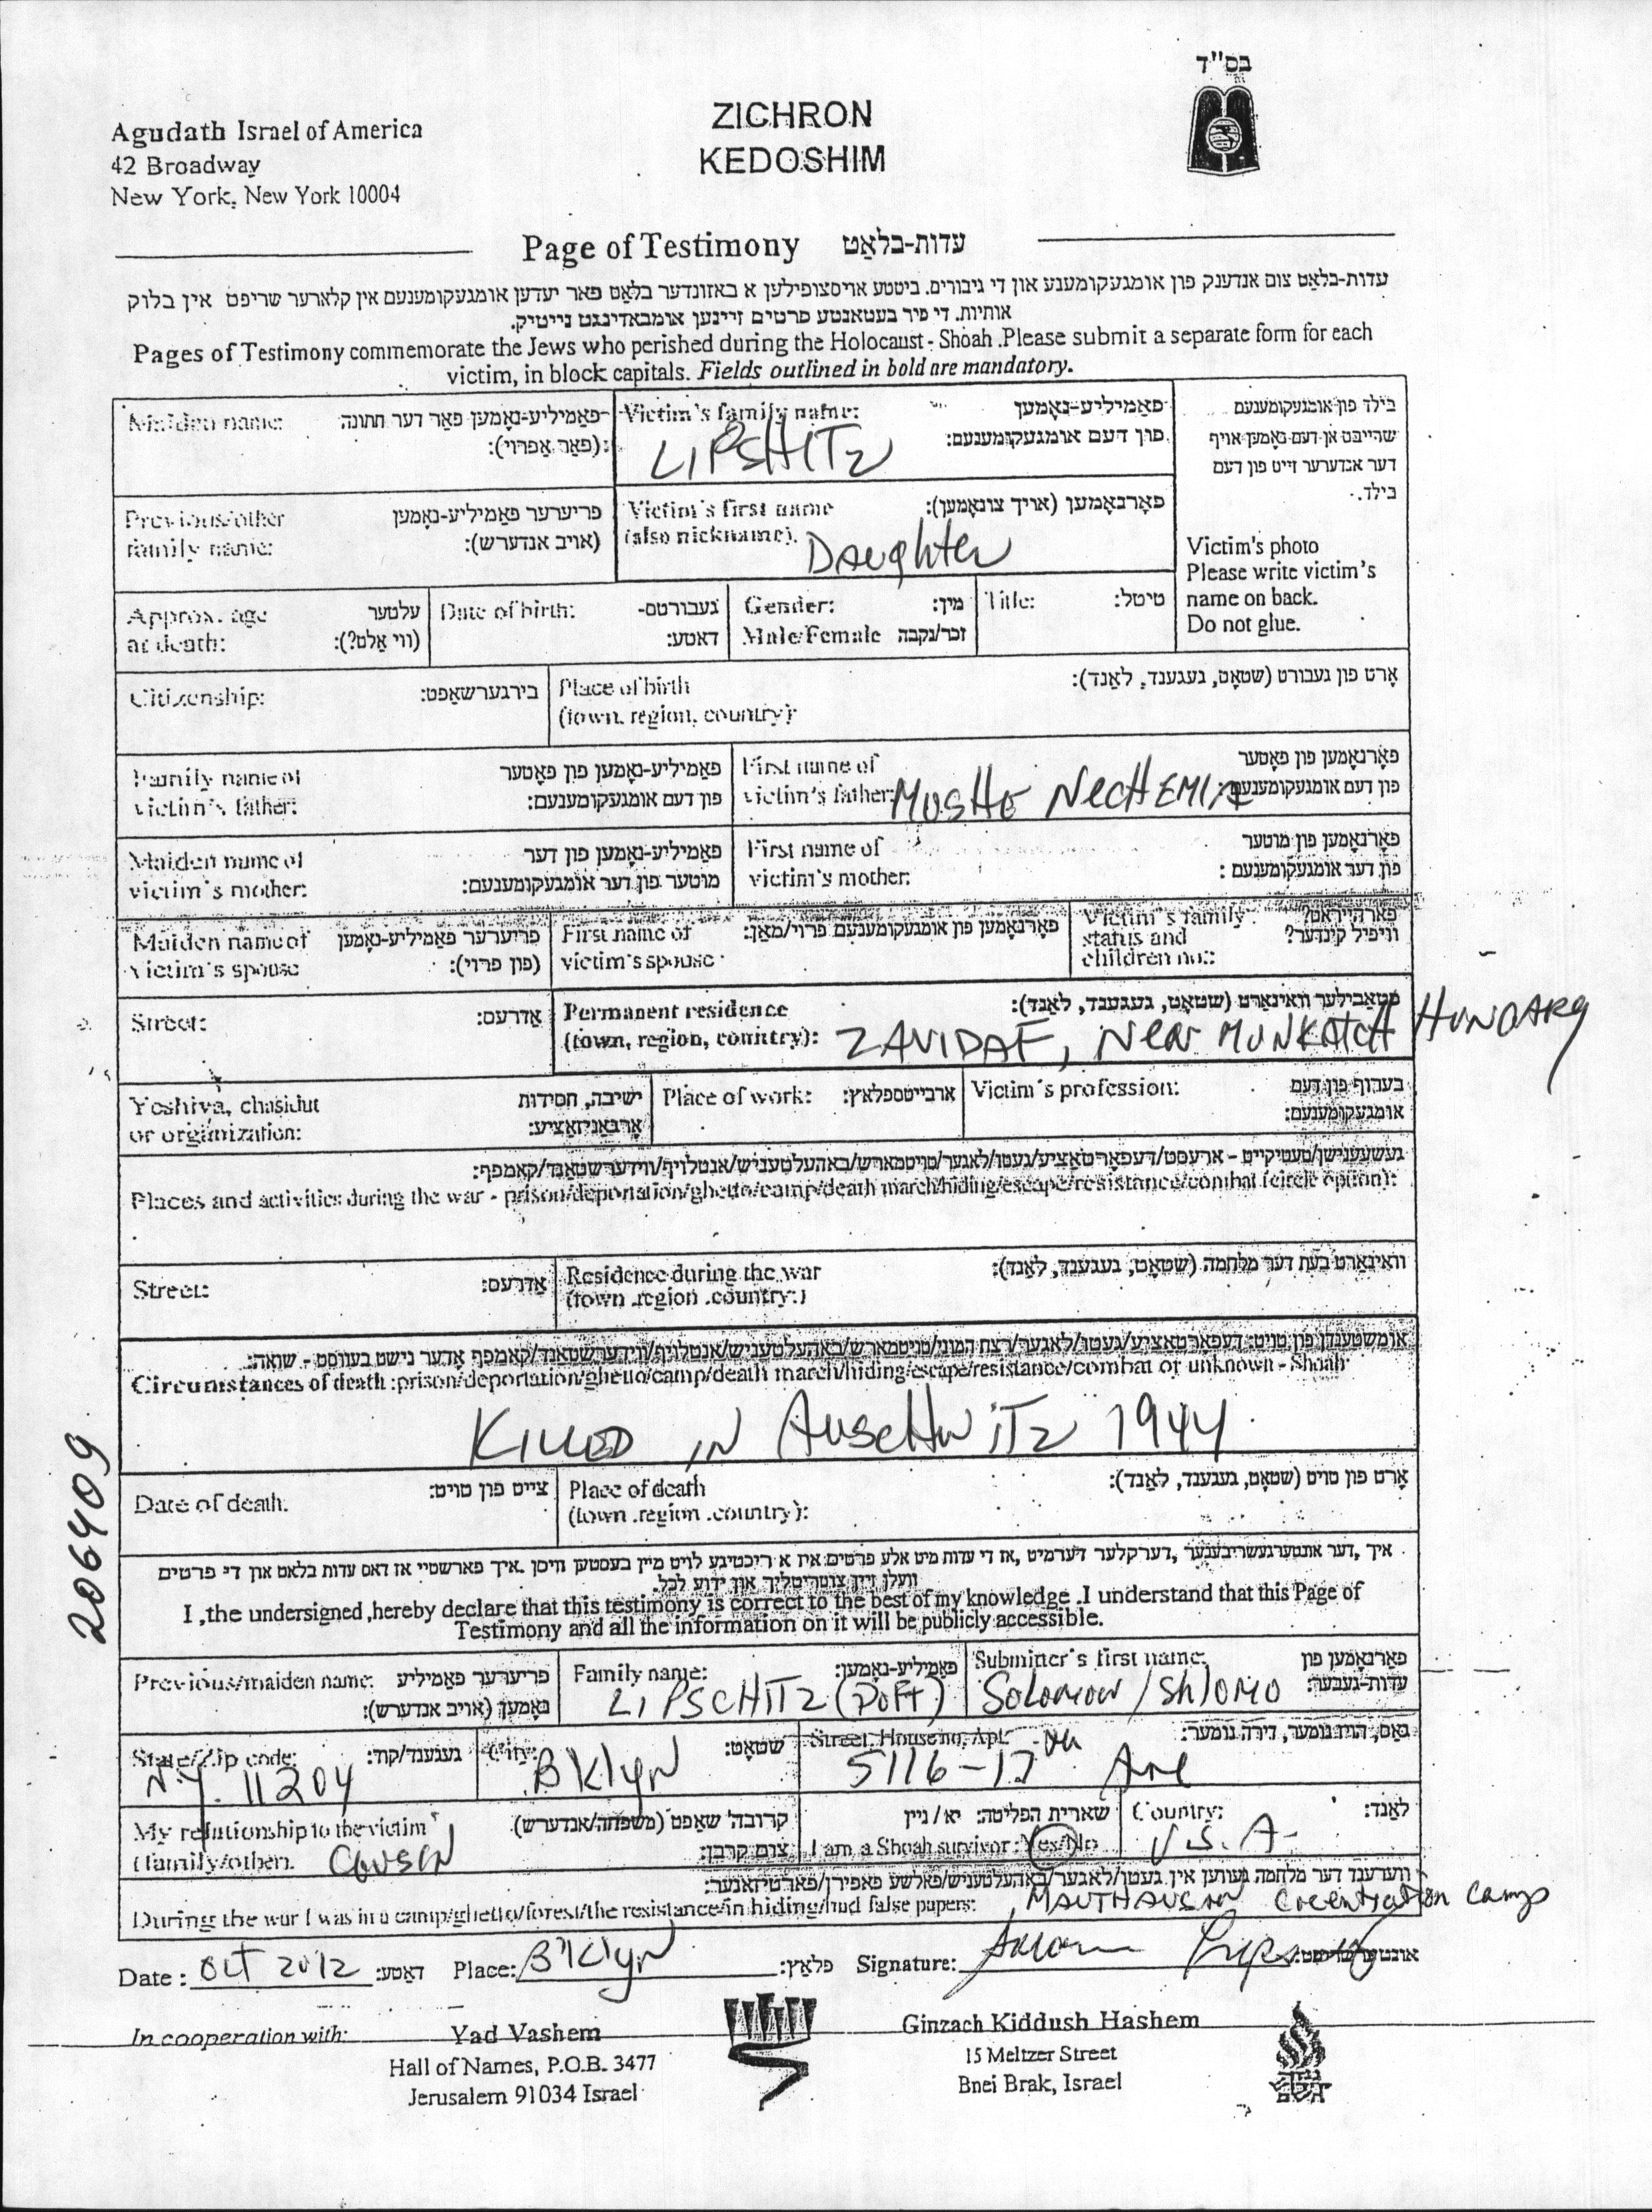 בס"ד
Agudath Israel of America
42 Broadway
New York, New York 10004
ZICHRON
KEDOSHIM
Page of Testimony עדות-בלאַט
עדות-בלאַט צום אנדענק פון אומגעקומענע און די גיבורים. ביטטע אויסצופילען א באזונדער בלאַט פאר יעדען אומגעקומענעם אין קלארער שריפט אין בלוק
אותיות. די פיר בעטאנטע פרטים זיינען אומבאדינגט נייטיק.
Pages of Testimony commemorate the Jews who perished during the Holocaust - Shoah .Please submit a separate form for each
victim, in block capitals. Fields outlined in bold are mandatory.
Maiden name: פאַמיליע-נאָמען פאַר דער חתונה
(פאַר אַפרוי):
Victim's family name: פאַמיליע-נאָמען
פון דעם אומגעקומענעם:
LIPSHITZ
בילד פון אומגעקומענעם
שרייבט אן דעם נאָמען אויף
דער אנדערער זייט פון דעם
בילד.
Previous/other פריערער פאַמיליע-נאָמען
family name: (אויב אנדערש):
Victim's first name פאָרנאָמען (אויך צונאָמען):
(also nickname). Daughter
Victim's photo
Please write victim's
name on back.
Do not glue.
Approx. age עלטער
at death: (ווי אַלט?):
Date of birth: געבורטס-
דאטע:
Gender: מין:
Male/Female זכר/נקבה
Title: טיטל:
Citizenship: בירגערשאַפט:
Place of birth אָרט פון געבורט (שטאָט, געגענד, לאַנד):
(town, region, country):
Family name of פאַמיליע-נאָמען פון פאָטער
victim's father: פון דעם אומגעקומענעם:
First name of פאָרנאָמען פון פאָטער
victim's father: פון דעם אומגעקומענעם
MOSHE NECHEMIA
Maiden name of פאַמיליע-נאָמען פון דער
victim's mother: מוטער פון דער אומגעקומענעם:
First name of פאָרנאָמען פון מוטער
victim's mother: פון דער אומגעקומענעם :
Maiden name of פריערער פאַמיליע-נאָמען
victim's spouse (פון פרוי):
First name of פאָרנאָמען פון אומגעקומענעם פרוי/מאַן:
victim's spouse
Victim's family פארהייראט?
status and וויפיל קינדער?
children no.:
Street: אַדרעס:
Permanent residence סטאַבילער וואוינאָרט (שטאָט, געגענד, לאַנד):
(town, region, country): ZAVIDAF, NeAR MUNKATCH HUNGARY
Yeshiva, chasidut ישיבה, חסידות
or organization: אָרגאַניזאַציע:
Place of work: ארבייטספלאץ:
Victim's profession: בערוף פון דעם
אומגעקומענעם:
געשעענישן/טעטיקייט - ארעסט/דעפּאָרטאַציע/געטו/לאגער/טויטמארש/באהעלטעניש/אנטלויף/ווידערשטאַנד/קאמפף:
Places and activities during the war - prison/deportation/ghetto/camp/death march/hiding/escape/resistance/combat (circle option):
Street: אַדרעס:
Residence during the war וואוינאָרט בעת דער מלחמה (שטאָט, געגענד, לאַנד):
(town .region .country:)
אומשטענדן פון טויט: דעפּאָרטאַציע/געטו/לאגער/רצח המוני/טויטמארש/באהעלטעניש/אנטלויף/ווידערשטאנד/קאמפף אָדער נישט בעוווסט - שואה:
Circumstances of death :prison/deportation/ghetto/camp/death march/hiding/escape/resistance/combat or unknown - Shoah
KILLED IN AUSCHWITZ 1944
Date of death: צייט פון טויט:
Place of death אָרט פון טויט (שטאָט, געגענד, לאַנד):
(town .region .country):
איך ,דער אונטערגעשריבענער ,דערקלער דערמיט ,אז די עדות מיט אלע פרטים איז א ריכטיגע לויט מיין בעסטען וויסן .איך פארשטיי אז דאס עדות בלאט און די פרטים
וועלן זיין צוטריטליך און ידוע לכל.
I ,the undersigned ,hereby declare that this testimony is correct to the best of my knowledge .I understand that this Page of
Testimony and all the information on it will be publicly accessible.
Previous/maiden name: פריערער פאַמיליע
נאָמען (אויב אנדערש):
Family name: פאַמיליע-נאָמען:
LIPSCHITZ (Doft)
Submitter's first name: פאָרנאָמען פון
עדות-געבער:
Solomon / Shlomo
State/Zip code: געגענד/קוד:
N.Y. 11204
City: שטאָט:
Bklyn
Street, House no, Apt: גאַס, הויז נומער, דירה נומער:
5116-17 th Ave
My relationship to the victim קרובה' שאפט (משפחה/אנדערש)
(family/other). צום קרבן:
Cousin
שארית הפליטה: יא / ניין
I am a Shoah survivor: Yes/No
Country: לאַנד:
U.S.A.
ווערענד דער מלחמה געווען אין געטו/לאגער/באהעלטעניש/פאלשע פאפירן/פארטיזאנער:
During the war I was in a camp/ghetto/forest/the resistance/in hiding/had false papers: MAUTHAUSEN Cocentration Camp
Date : Oct 2012 דאַטע: Place: B'klyn פלאַץ: Signature:
206409
In cooperation with: Yad Vashem
Hall of Names, P.O.B. 3477
Jerusalem 91034 Israel
Ginzach Kiddush Hashem
15 Meltzer Street
Bnei Brak, Israel